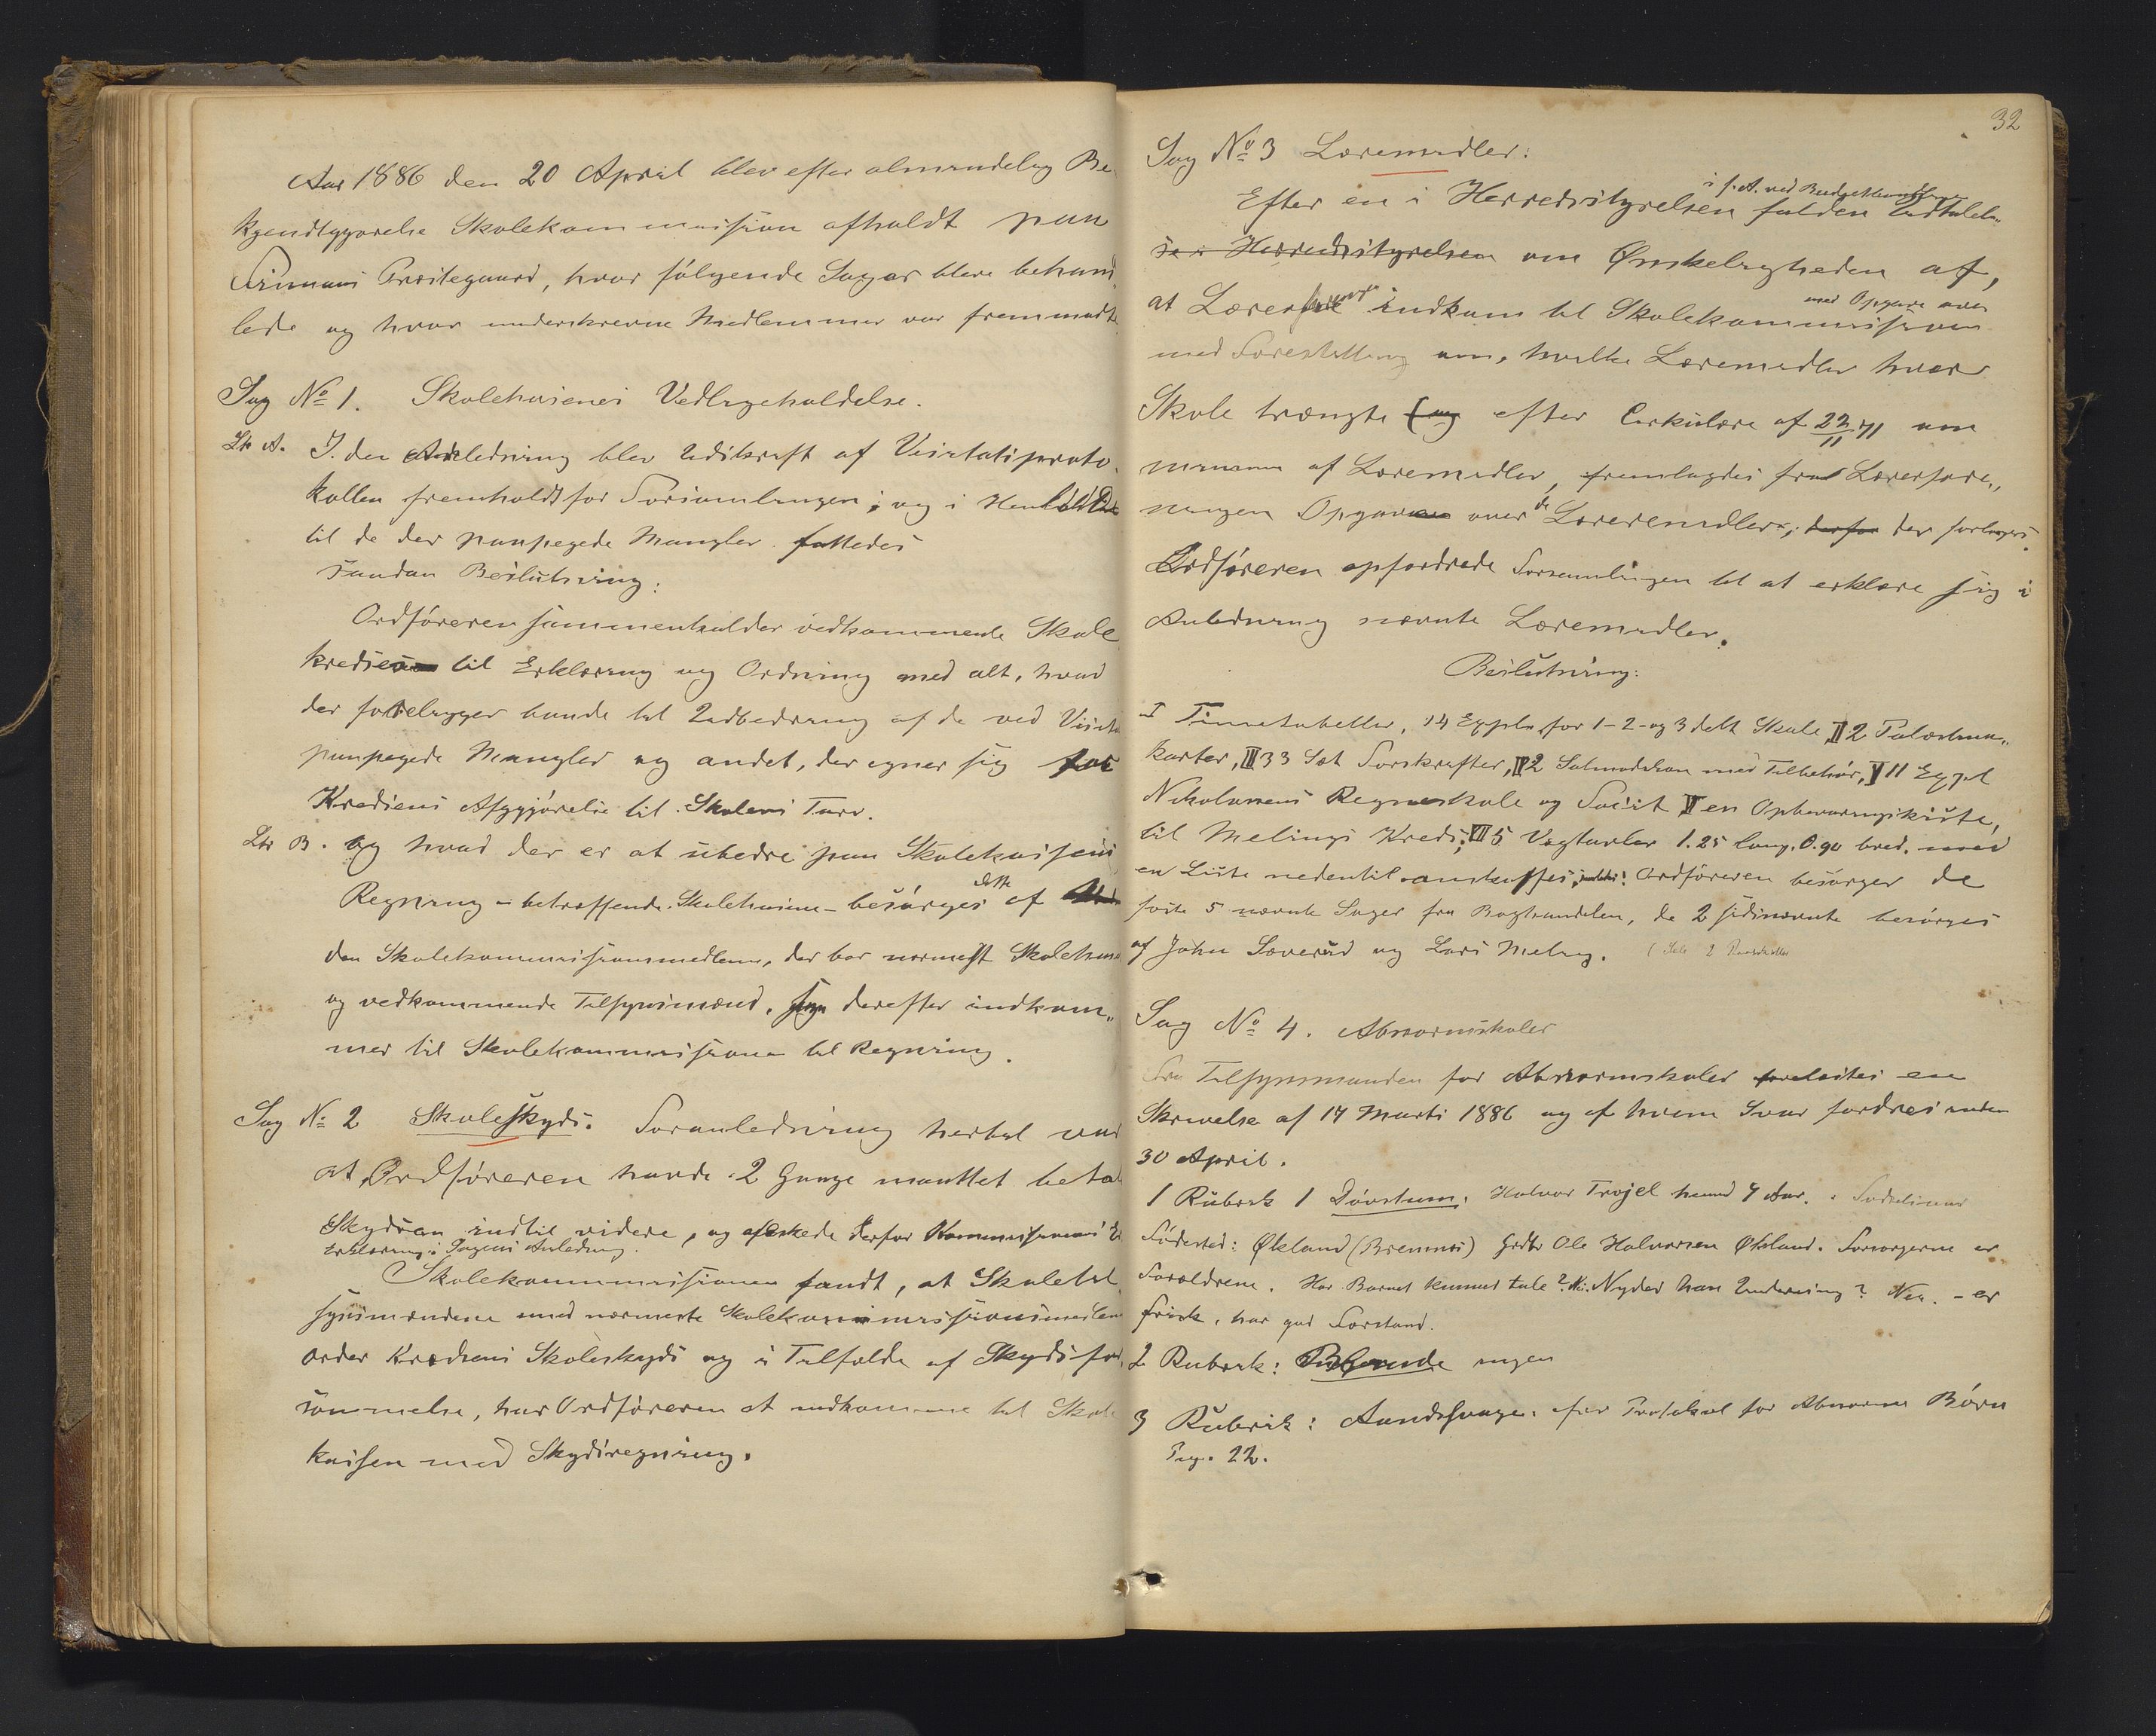 Aar 1886 den 20 April blev efter almindelig Be-
kjendtgjørelse Skolekommission afholdt paa
Finnaas Præstegaard, hvor følgende Sager bleve behand-
lede og hvor underskrevne Medlemmer var fremmødte
Sag № 1. Skolehusenes Vedligeholdelse.
Ltr A. I den Anledning blev Udskrift af Visitatsproto-
kollen fremholdt for Forsamlingen; og i Henhold
til de der paapegede Mangler fattedes
saadan Beslutning:
Ordføreren sammenkalder vedkommende Skole
kredse til Erklæring og Ordning med alt, hvad
der foreligger baade til Udbedring af de ved Visita
paapegede Mangler og andet, der egner sig for
Kredsens Afgjørelse til Skolens Tarv.
Ltr B. og hvad der er at udbedre paa Skolekassens
Regning – betræffende Skolehusene – besørges dette af
den Skolekommissionsmedlem, der bor nærmest Skolehuset
og vedkommende Tilsynsmænd, som derefter indkom-
mer til Skolekommissionen til Regning.
Sag № 2 Skoleskyds. Foranledning hertil var
at Ordføreren havde 2 Gange maattet betale
Skydsen indtil videre, og æskede derfor Kommissionens
Erklæring i Sagens Anledning.
Skolekommissionen fandt, at Skoletil-
synsmændene med nærmeste Skolekommissionsmedlem
ordner Kredsens Skoleskyds og i Tilfælde af Skydsfor-
sømmelse, har Ordføreren at indkomme til Skole
kassen med Skydsregning.
32
Sag № 3 Læremidler:
i f. A. ved Budgetbehandlingen
Efter en i Herredsstyrelsen falden Udtalel-
se i Herredsstyrelsen om Ønskeligheden af,
med Opgave over
at Lærerforeningen indkom til Skolekommissionen
med Forestilling om, hvilke Læremidler hver
Skole trængte (og efter Cirkulære af 22/11 71 om
af Læremidler, fremlagdes fra Lærerfore-
ningen Opgave over de Læremidler, derfor der forlanges.
Ordføreren opfordrede Forsamlingen til at erklære sig i
Anledning nævnte Læremidler.
Beslutning:
I Timetabeller, 14 Expl. for 1- 2- og 3 delt Skole, II 2 Palæstina-
karter, III 33 Sæt Forskrifter, IV 2 Salmodikon med Tilbehør, V 11 Expl
Nikolaisens Regneskole og Facit VI en Opbevaringskiste,
til Melings Kreds; VII 5 Vægtavler 1.25 lang, 0.90 bred. med
en Liste nedentil anskaffes; Ordføreren besørger de
første 5 nævnte Sager fra Boghandelen, de 2 sidstnævnte besørges
af John Sæverud og Lars Meling.
Sag № 4. Abnormskoler
Fra Tilsynsmanden for Abnormskoler forelæstes en
Skrivelse af 14 Marts 1886 og af hvem Svar fordres inden
30 April.
1 Rubrik 1 Døvstum. Halvor Trojel henved 4 Aar.
Fødested: Økland (Bremnes) Grdbr Ole Halvorsen Økland. Forsørgerne er
Forældrene. Har Barnet kunnet tale? Nei. Nyder han Underviisning? Nei. – er
frisk, har god Forstand.
2 Rubrik: Blinde ingen
3 Rubrik: Aandssvage. efter Protokol for Abnorme Børn
Pag. 22.